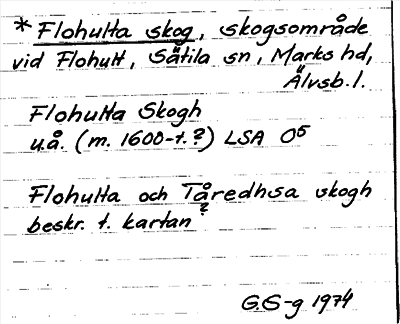 * Flohulta skog, skogsområde
vid Flohult, Sätila sn, Marks hd,
Älvsb. l.
Flohulta Skogh
u.å. (m. 1600-t.?) LSA O5
Flohulta och Tåredhsa skogh
?
beskr. t. kartan
G.S-g 1974